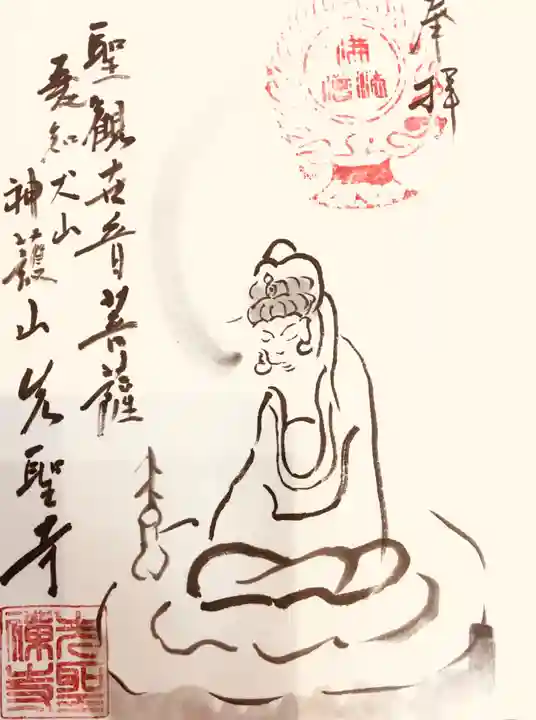 奉拝
聖観世音菩薩
愛知犬山
神護山 先聖寺
先聖
禅寺